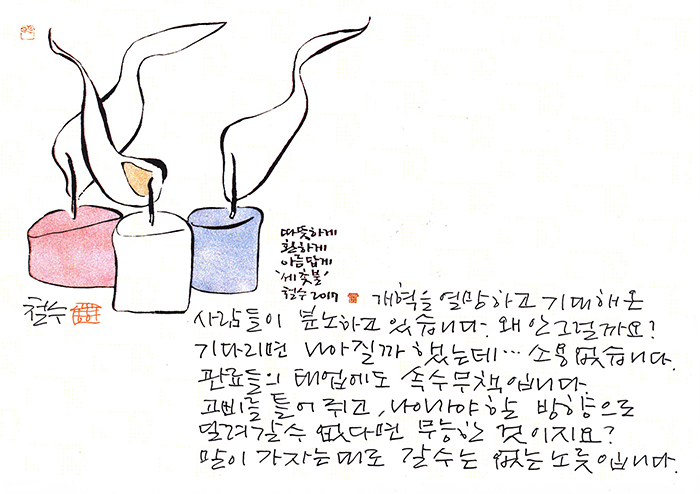 따뜻하게
환하게
아름답게
'세 촛불'
철수 2017
철수
개혁을 열망하고 기대해온
사람들이 분노하고 있습니다. 왜 안 그럴까요?
기다리면 나아질까 했는데… 소용없습니다.
관료들의 태업에도 속수무책입니다.
고삐를 틀어쥐고, 나아가야 할 방향으로
달려갈 수 없다면 무능한 것이지요?
말이 가자는 대로 갈 수는 없는 노릇입니다.